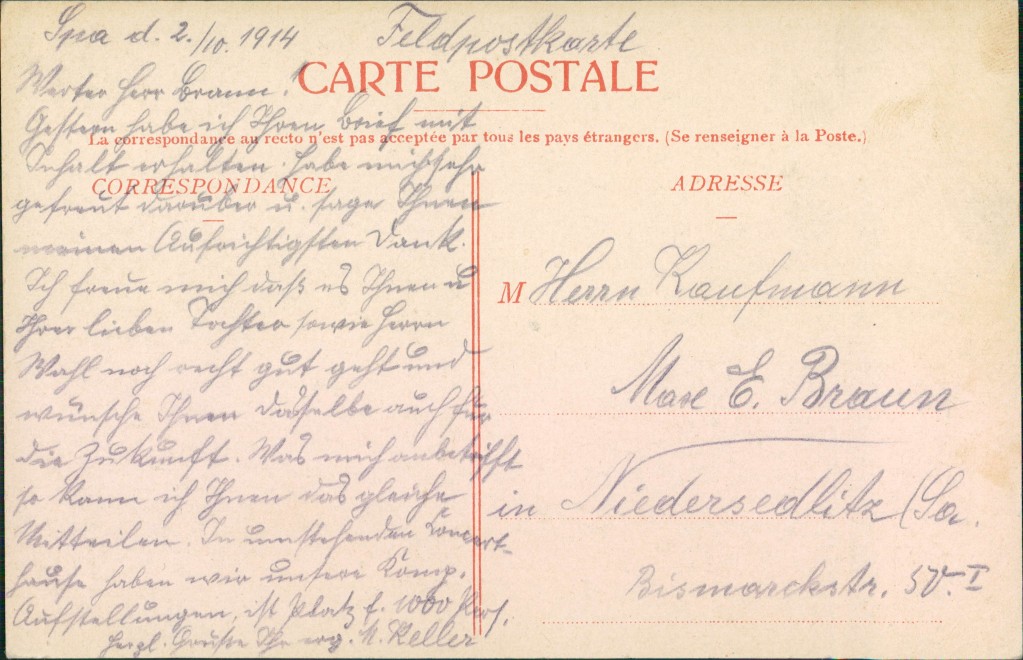 Spa d. 2./10. 1914
Feldpostkarte
CARTE POSTALE
La correspondance au recto n'est pas acceptée par tous les pays étrangers. (Se renseigner à la Poste.)
CORRESPONDANCE
Werter Herr Braun!
Gestern habe ich Ihren Brief mit
Inhalt erhalten. Habe mich sehr
gefreut darüber u. sage Ihnen
meinen Aufrichtigsten Dank.
Ich freue mich daß es Ihnen u
Ihrer lieben Tochter sowie Herrn
Wahl noch recht gut geht und
wünsche Ihnen dasselbe auch für
die Zukunft. Was mich anbetrifft
so kann ich Ihnen das gleiche
Mitteilen. In umstehenden Konzert-
hause haben wir unsere Komp.
Aufstellungen, ist Platz f. 1000 Pers.
Herzl. Grüße Ihr erg. M. Keller
ADRESSE
M Herrn Kaufmann
Max E. Braun
in Niedersedlitz (Sa.
Bismarckstr. 50. I